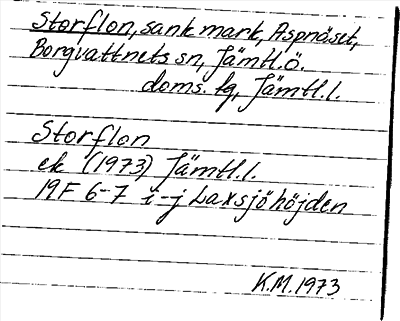 Storflon, sank mark, Aspnäset,
Borgvattnets sn, Jämtl.ö.
doms. fg, Jämtl.l.
Storflon
ek (1973) Jämtl.l.
19F 6-7 i-j Laxsjöhöjden
K.M.1973